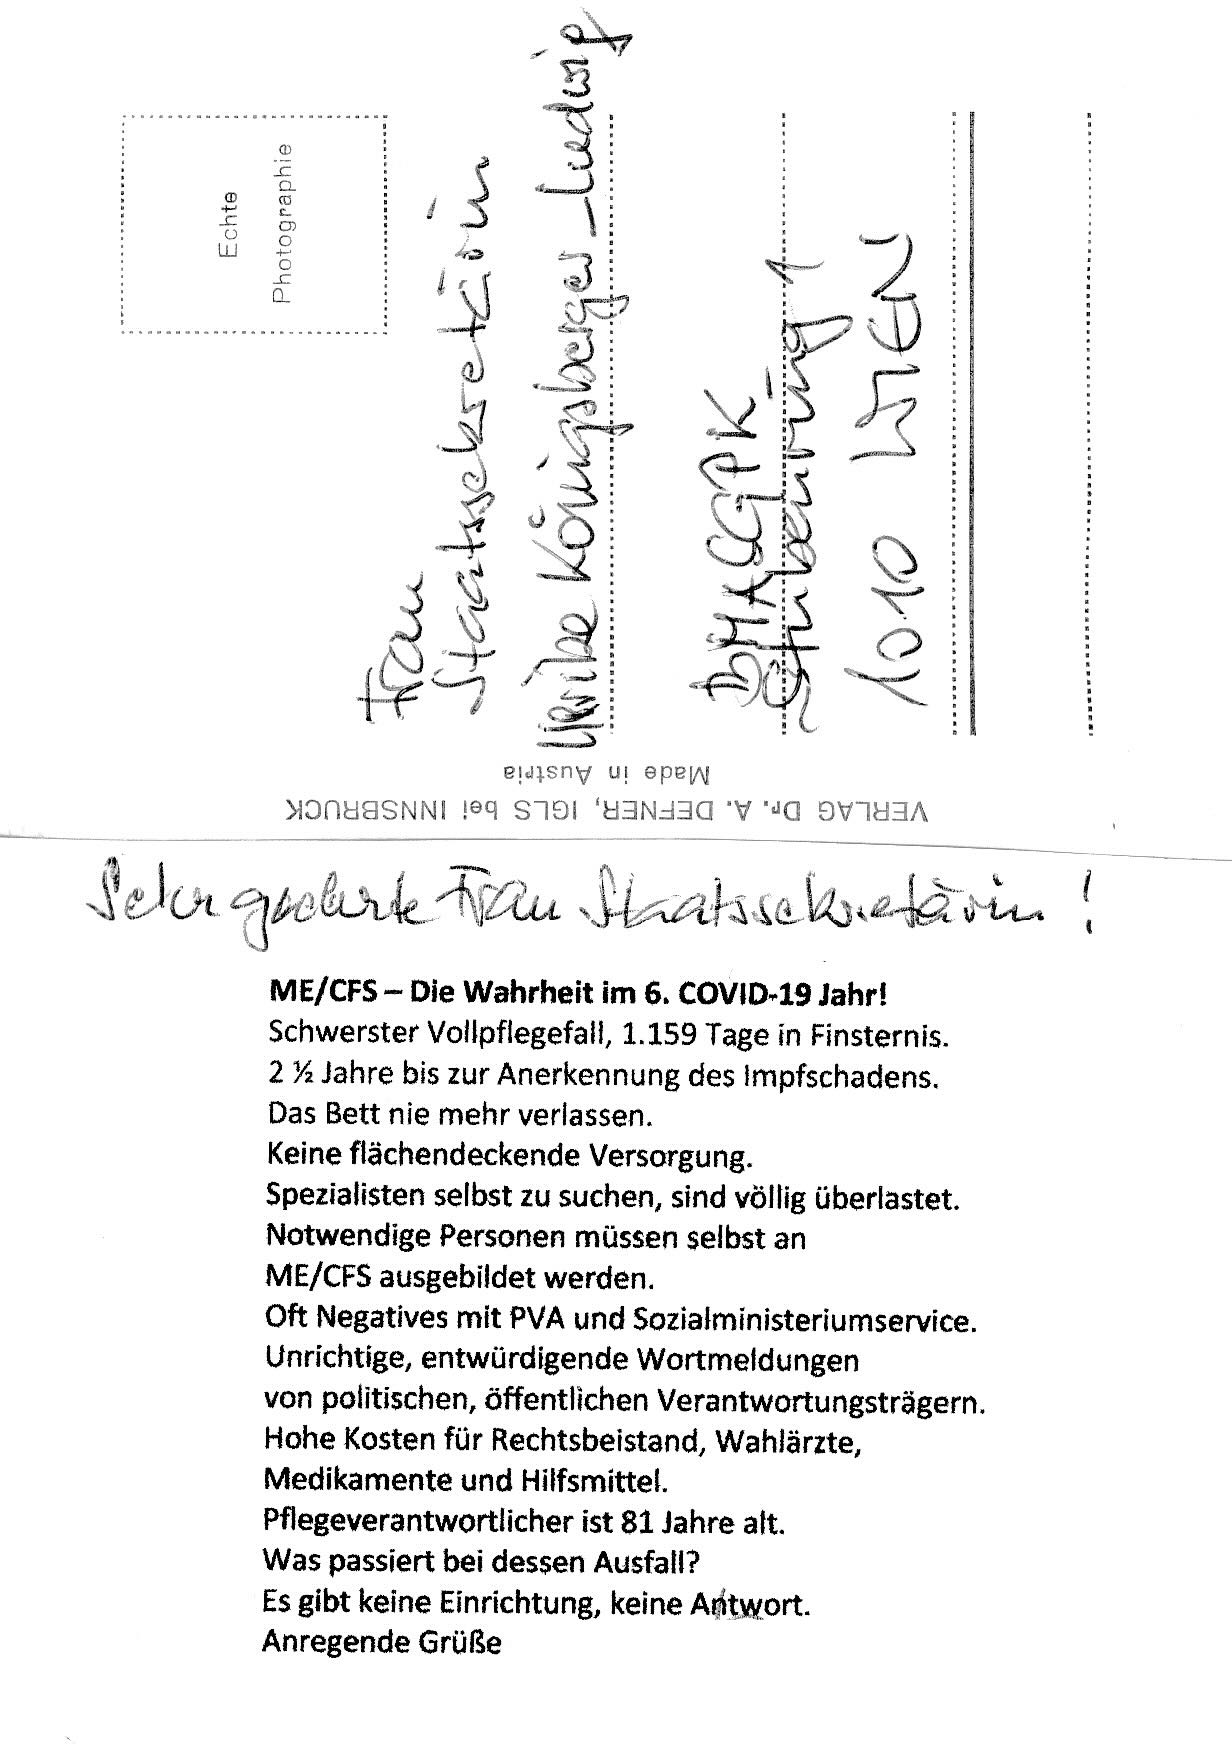 Echte
Photographie
Frau
Staatssekretärin
Ulrike Königsberger-Ludwig
BMASGPK
Stubenring 1
1010 WIEN
Made in Austria
VERLAG Dr. A. DEFNER, IGLS bei INNSBRUCK
Sehr geehrte Frau Staatssekretärin!
ME/CFS – Die Wahrheit im 6. COVID-19 Jahr!
Schwerster Vollpflegefall, 1.159 Tage in Finsternis.
2 ½ Jahre bis zur Anerkennung des Impfschadens.
Das Bett nie mehr verlassen.
Keine flächendeckende Versorgung.
Spezialisten selbst zu suchen, sind völlig überlastet.
Notwendige Personen müssen selbst an
ME/CFS ausgebildet werden.
Oft Negatives mit PVA und Sozialministeriumservice.
Unrichtige, entwürdigende Wortmeldungen
von politischen, öffentlichen Verantwortungsträgern.
Hohe Kosten für Rechtsbeistand, Wahlärzte,
Medikamente und Hilfsmittel.
Pflegeverantwortlicher ist 81 Jahre alt.
Was passiert bei dessen Ausfall?
Es gibt keine Einrichtung, keine Antwort.
Anregende Grüße